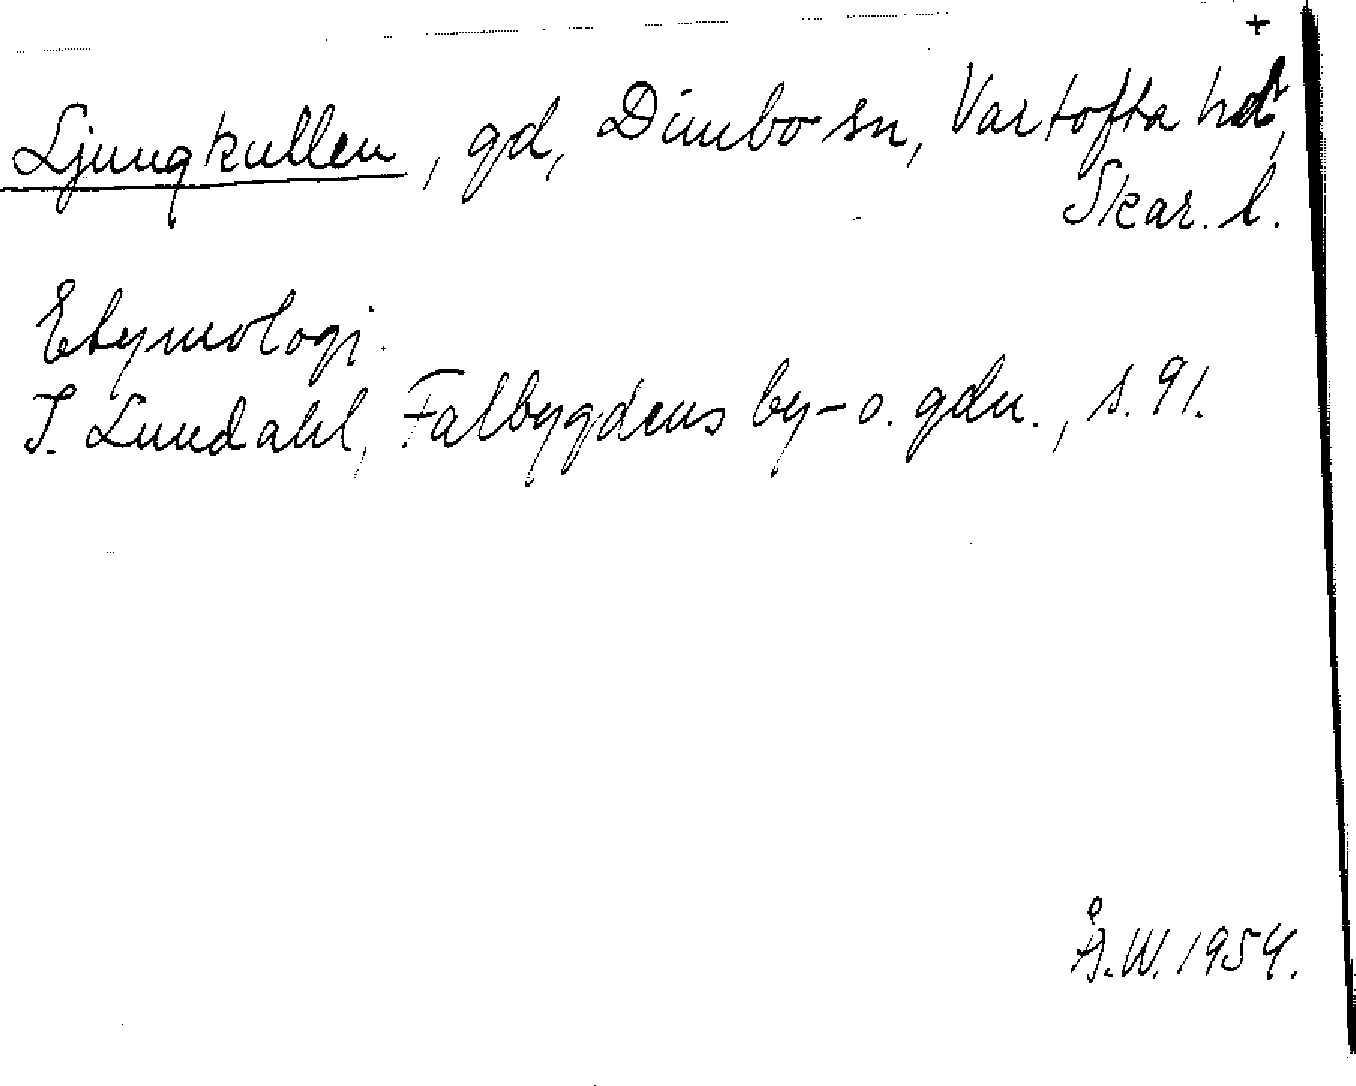 +
Ljungkullen, gd, Dimbo sn, Vartofta hd,
Skar. l.
Etymologi.
I. Lundahl, Falbygdens by- o. gdn., s. 91.
Å.W. 1954.